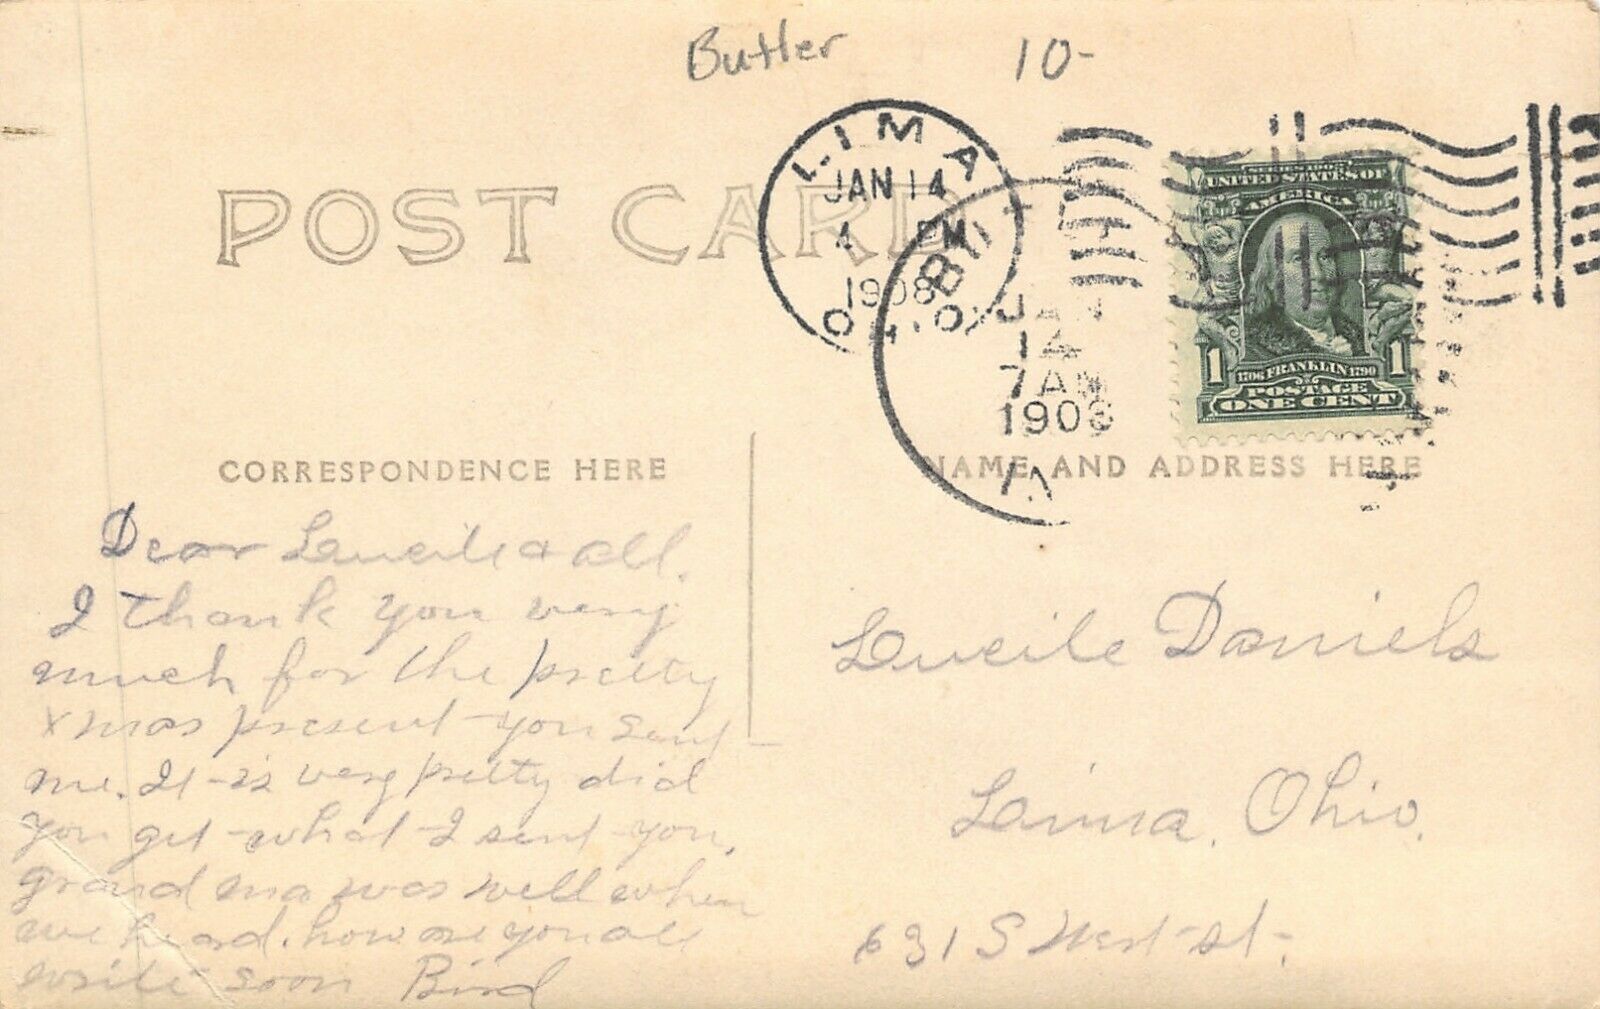 Butler 10-
LIMA
JAN 14
4 PM
1908
OHIO
POST CARD
BUT
JAN
14
7 AM
1908
UNITED STATES OF
AMERICA
1 1
1706 FRANKLIN 1790
POSTAGE
ONE CENT
CORRESPONDENCE HERE
NAME AND ADDRESS HERE
Dear Lucile & all.
I thank you very
much for the pretty
xmas present you sent
me. It is very pretty did
you get what I sent you.
grand ma was well when
we heard. how are you all
write soon Bird
Lucile Daniels
Lima, Ohio.
631 S West st.